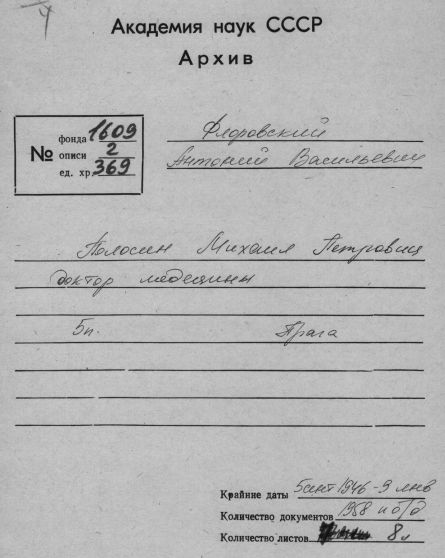 4
Академия наук СССР
Архив
№
фонда 1609
описи 2
ед. хр. 369
Флоровский
Антоний Васильевич
Полосин Михаил Петрович
доктор медицины
5п. Прага
Крайние даты 5 сент 1946 - 9 янв
Количество документов 1958 и б/д
Количество листов 8л